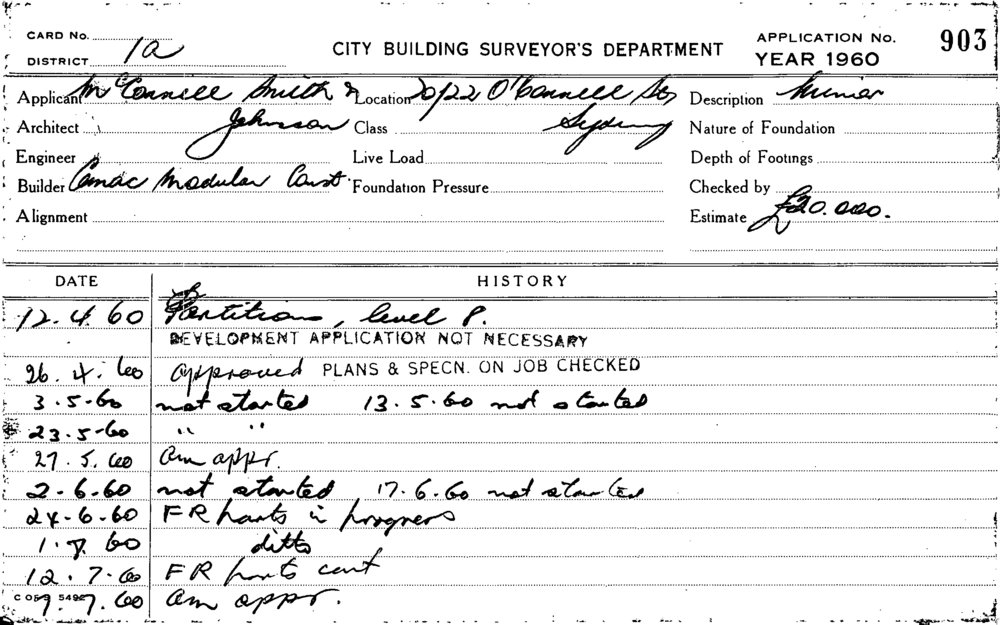 CARD No.
DISTRICT 1a
CITY BUILDING SURVEYOR'S DEPARTMENT
APPLICATION No. 903
YEAR 1960
Applicant McConnell Smith & Johnson
Location 20/22 O'Connell St, Sydney
Description
Architect
Class
Nature of Foundation
Engineer
Live Load
Depth of Footings
Builder Comac Modular Const.
Foundation Pressure
Checked by
Alignment
Estimate £20.000.
DATE HISTORY
12.4.60 Partitions, level 8.
DEVELOPMENT APPLICATION NOT NECESSARY
26.4.60 approved PLANS & SPECN. ON JOB CHECKED
3.5.60 not started 13.5.60 not started
23.5.60 " "
27.5.60 Am appr.
2.6.60 not started 17.6.60 not started
24.6.60 FR parts in progress
1.7.60 ditto
12.7.60 FR parts cont
7.60 Am appr.